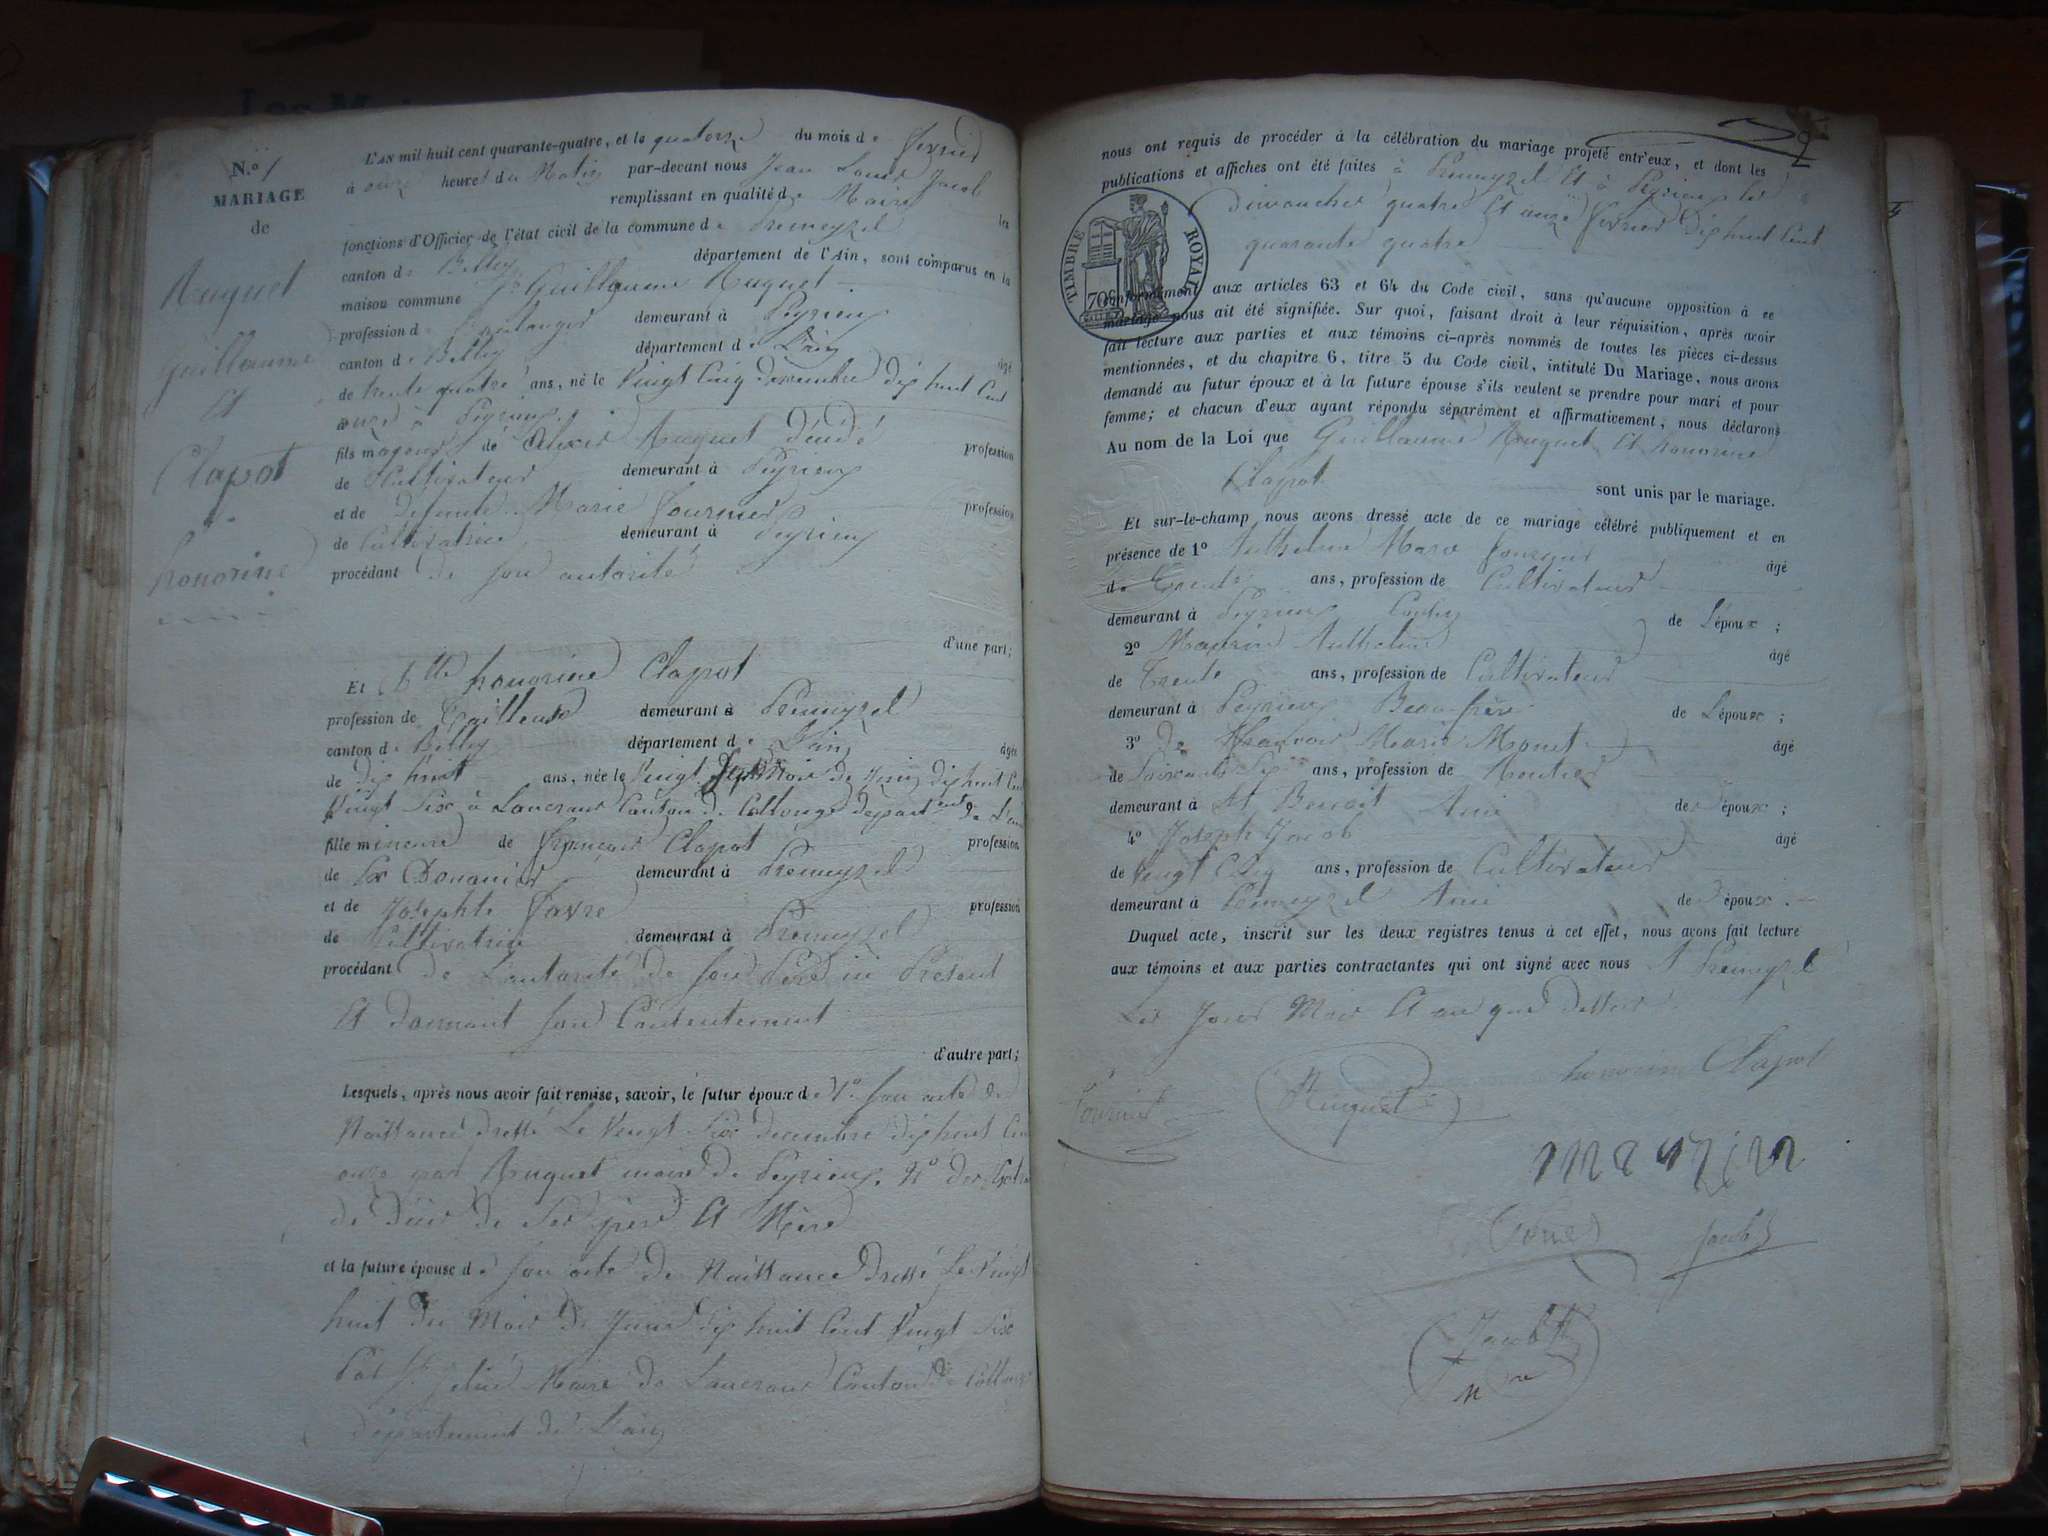 N.º 1
MARIAGE
de
Ruquet
guillaume
Et
Clapot
honorine
L'AN mil huit cent quarante-quatre, et le quatorze du mois de fevrier
à onze heures du Matin par-devant nous Jean Louis Jacob
remplissant en qualité de Maire les
fonctions d'Officier de l'état civil de la commune de Premeyzel
canton de Belley département de l'Ain, sont comparus en la
maison commune Sr Guillaume Ruquet
profession de Boulanger demeurant à Peyrieux
canton de Belley département de L'ain âgé
de trente quatre ans, né le Vingt Cinq decembre dix huit Cent
onze à Peyrieux
fils majeur de Ruquet Décédé profession
de Cultivateur demeurant à Peyrieux
et de defunte Marie fournier profession
de Cultivatrice demeurant à Peyrieux
procédant de son autorité
d'une part;
Et Dlle honorine Clapot
profession de Tailleuse demeurant à Premeyzel
canton de Belley département de L'ain âgée
de dix huit ans, née le Vingt Mois de Juin dix huit Cent
Vingt Six à Lancrans Canton de Collonge departemt de L'ain
fille mineure de françois Clapot profession
de Ex Douanier demeurant à Premeyzel
et de Josephte favre profession
de Cultivatrice demeurant à Premeyzel
procédant de L'autorité de son Père ici Présent
Et donnant son Consentement
d'autre part;
Lesquels, après nous avoir fait remise, savoir, le futur époux de 1º son acte de
Naissance dressé Le Vingt Six decembre dix huit Cent
onze par Ruquet maire de Peyrieux, 2º des Extraits
de décès de Ses père Et Mère
et la future épouse de son acte de Naissance dressé Le Vingt
huit du Mois de Juin dix huit Cent Vingt Six
Par Sr Maire de Lancrans Canton de Collonge
département de L'ain
nous ont requis de procéder à la célébration du mariage projeté entr'eux, et dont les
publications et affiches ont été faites à Premeyzel Et à Peyrieux les
Dimanches quatre Et onze fevrier dix huit Cent
quarante quatre
TIMBRE ROYAL
70c
conformément aux articles 63 et 64 du Code civil, sans qu'aucune opposition à ce
mariage nous ait été signifiée. Sur quoi, faisant droit à leur réquisition, après avoir
fait lecture aux parties et aux témoins ci-après nommés de toutes les pièces ci-dessus
mentionnées, et du chapitre 6, titre 5 du Code civil, intitulé Du Mariage, nous avons
demandé au futur époux et à la future épouse s'ils veulent se prendre pour mari et pour
femme; et chacun d'eux ayant répondu séparément et affirmativement, nous déclarons
Au nom de la Loi que Guillaume Ruquet Et honorine
Clapot sont unis par le mariage.
Et sur-le-champ nous avons dressé acte de ce mariage célébré publiquement et en
présence de 1º Anthelme Marie fournier âgé
de Trente ans, profession de Cultivateur
demeurant à Peyrieux Cousin de L'époux;
2º Maurin Anthelme âgé
de Trente ans, profession de Cultivateur
demeurant à Peyrieux Beau frère de L'époux;
3º de françois Marie Monet âgé
de ans, profession de Rentier
demeurant à St Benoit Ami de L'époux;
4º Joseph Jacob âgé
de Vingt Cinq ans, profession de Cultivateur
demeurant à Premeyzel Ami de L'époux.
Duquel acte, inscrit sur les deux registres tenus à cet effet, nous avons fait lecture
aux témoins et aux parties contractantes qui ont signé avec nous A Premeyzel
Les Jour Mois Et an que dessus
honorine Clapot
fournier Ruquet
maurin
Jacob
Jacob
Mre